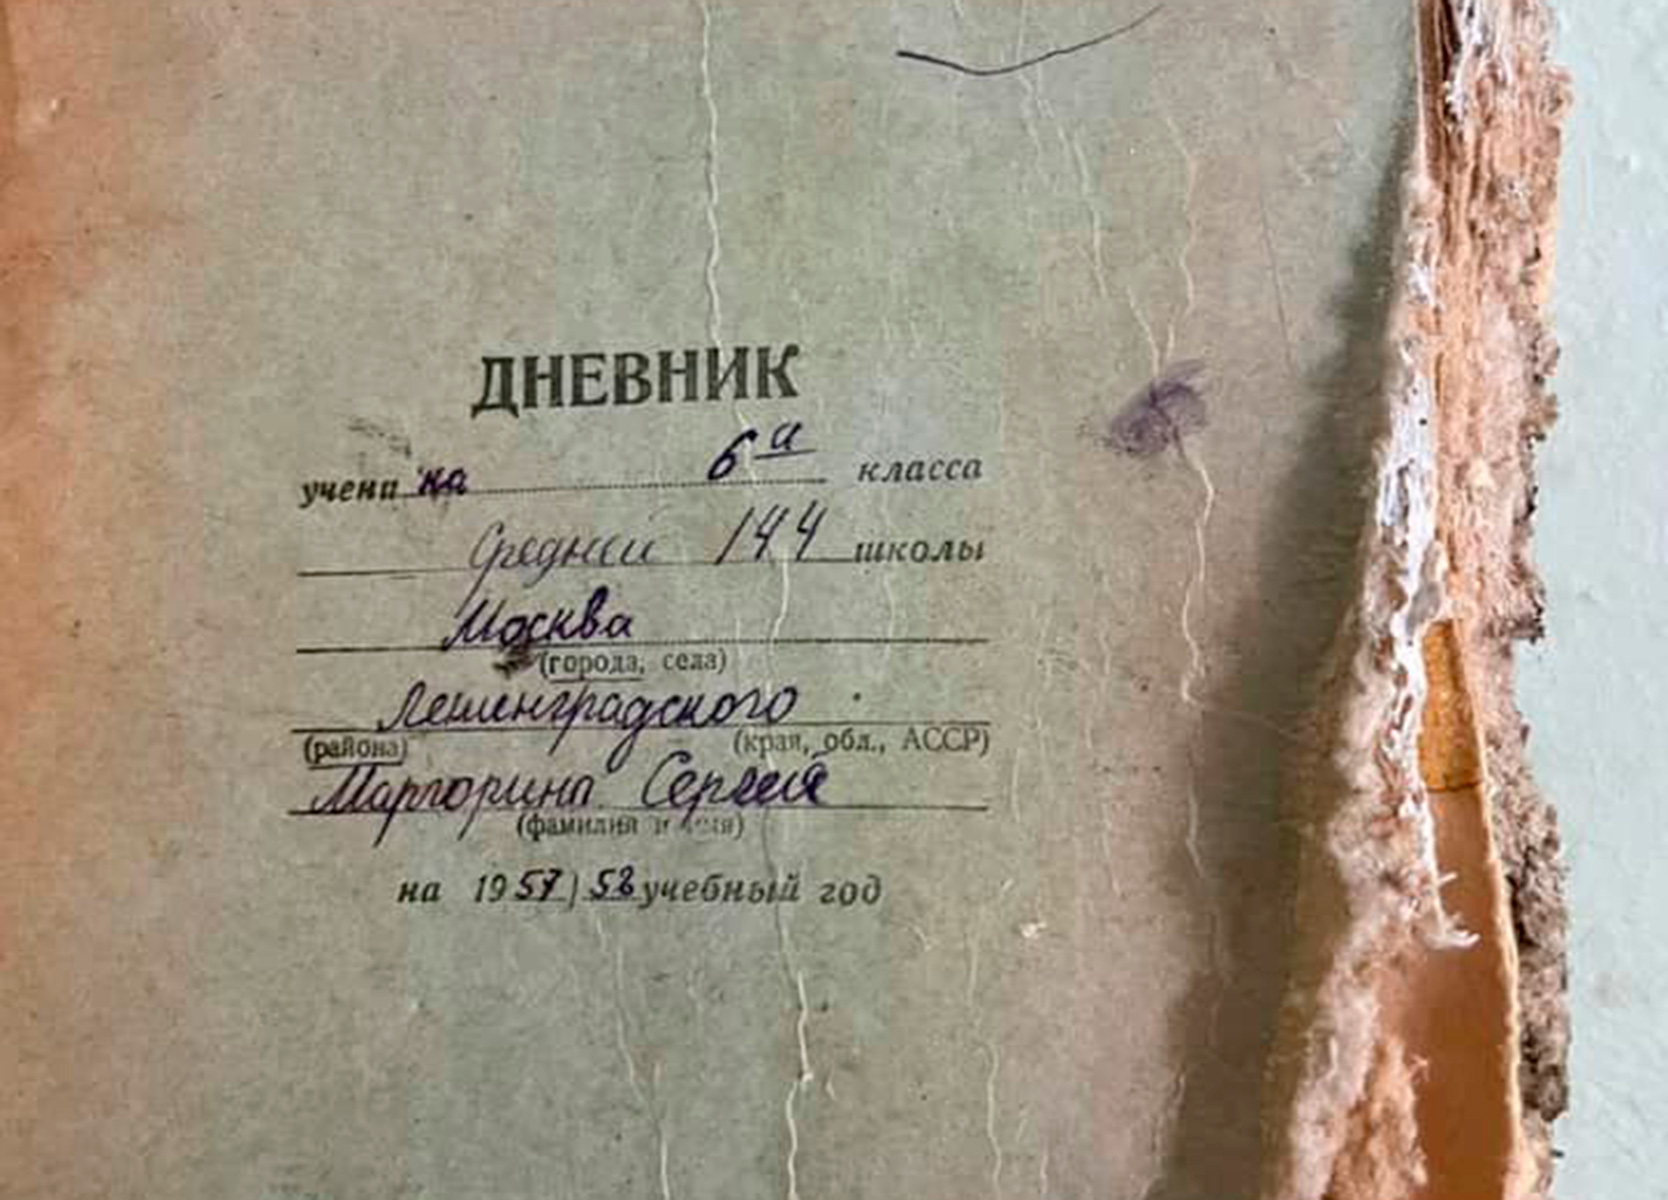 ДНЕВНИК
учени ка 6 а класса
Средней 144 школы
Москва
(города, села)
Ленинградского
(района) (края, обл., АССР)
Маргорина Сергея
(фамилия и имя)
на 1957/58 учебный год